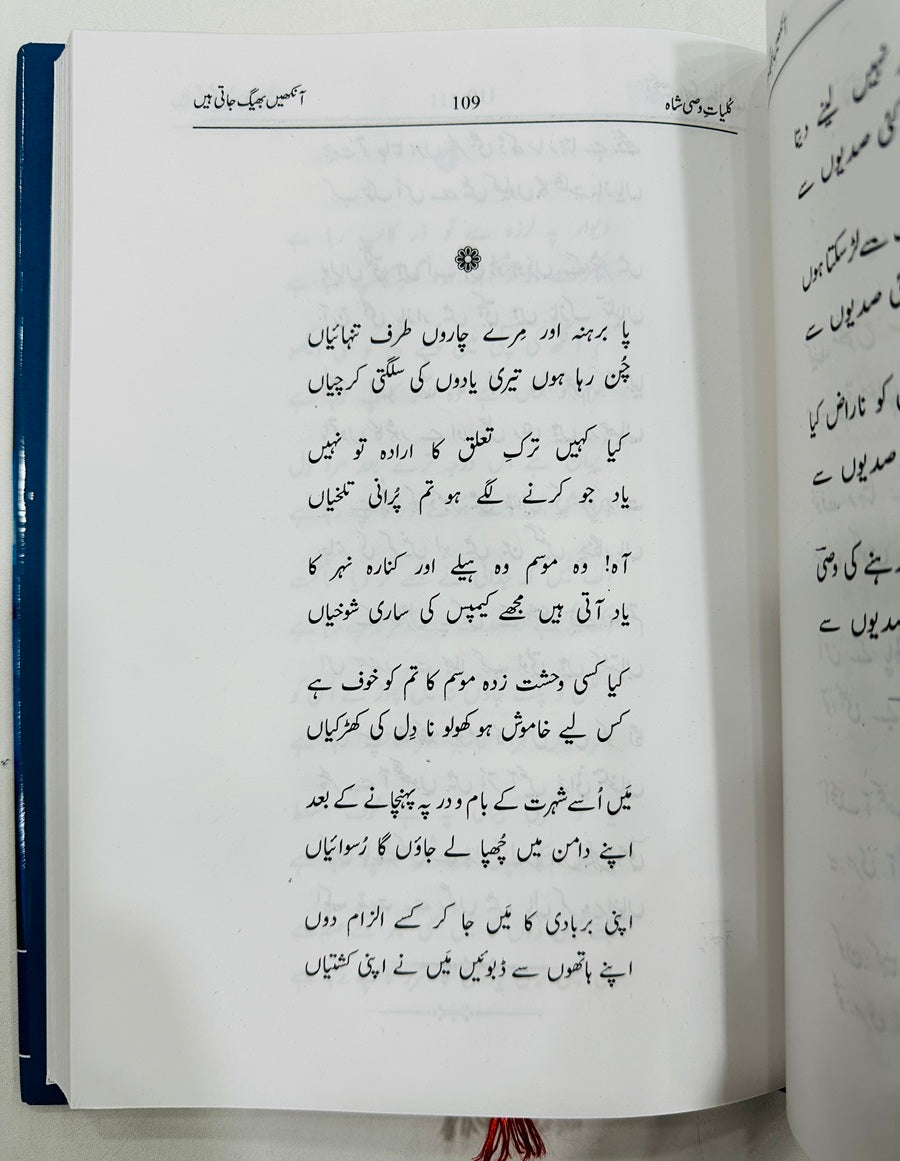 کُلیاتِ وصی شاہ 109 آنکھیں بھیگ جاتی ہیں
پا برہنہ اور مِرے چاروں طرف تنہائیاں
چُن رہا ہوں تیری یادوں کی سلگتی کرچیاں
کیا کہیں ترکِ تعلق کا ارادہ تو نہیں
یاد جو کرنے لگے ہو تم پُرانی تلخیاں
آہ! وہ موسم وہ ہیلے اور کنارہ نہر کا
یاد آتی ہیں مجھے کیمپس کی ساری شوخیاں
کیا کسی وحشت زدہ موسم کا تم کو خوف ہے
کس لیے خاموش ہو کھولو نا دِل کی کھڑکیاں
مَیں اُسے شہرت کے بام و در پہ پہنچانے کے بعد
اپنے دامن میں چُھپا لے جاؤں گا رُسوائیاں
اپنی بربادی کا مَیں جا کر کسے الزام دوں
اپنے ہاتھوں سے ڈبوئیں مَیں نے اپنی کشتیاں
نہیں لینے دیتا
کئی صدیوں سے
سے لڑ سکتا ہوں
صدیوں سے
کو ناراض کیا
صدیوں سے
رہنے کی وصیؔ
صدیوں سے